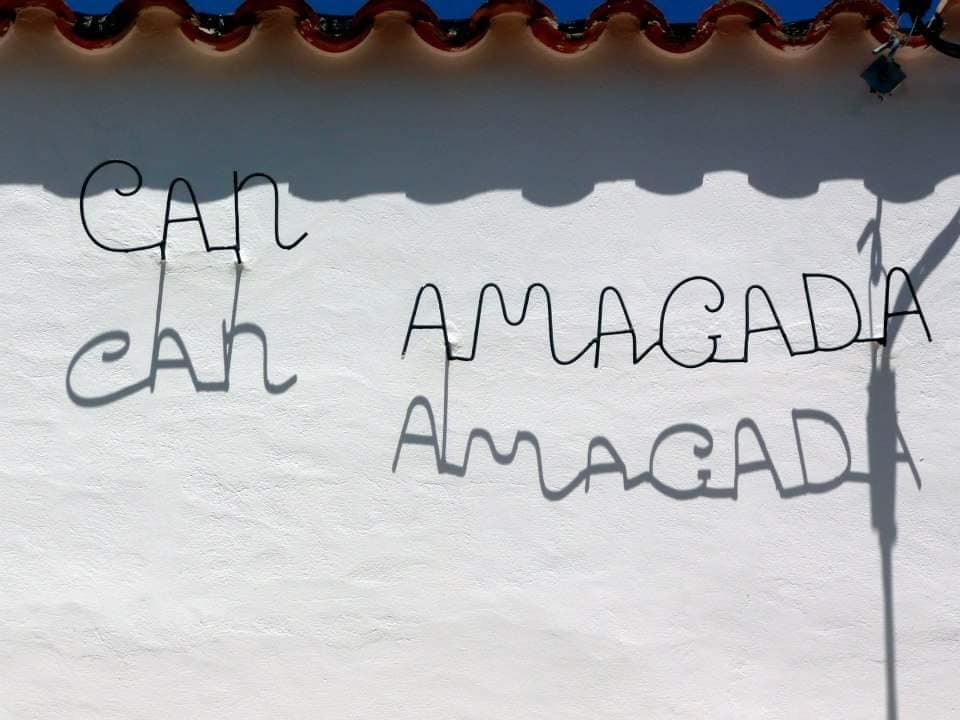 CAn
AMAGADA